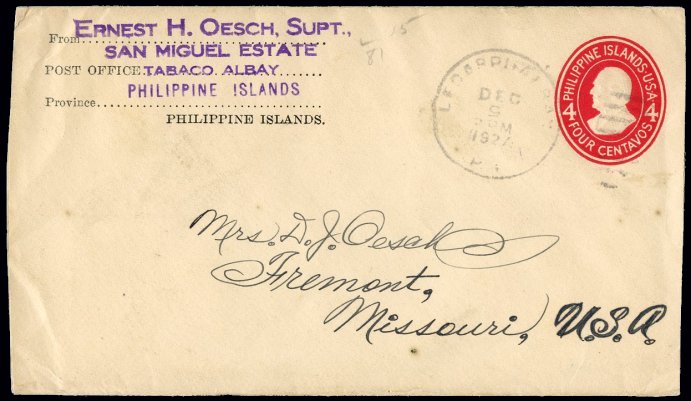 From ERNEST H. OESCH, SUPT.,
SAN MIGUEL ESTATE
POST OFFICE TABACO ALBAY
PHILIPPINE ISLANDS
Province
PHILIPPINE ISLANDS.
15
DEC
5
1924
PHILIPPINE ISLANDS·U·S·A·
4 4
FOUR CENTAVOS
Mrs. D. J. Oesch
Fremont,
Missouri, U.S.A.